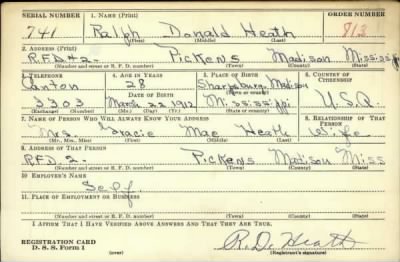 SERIAL NUMBER 1. NAME (Print) ORDER NUMBER
741 Ralph Donald Heath 812
(First) (Middle) (Last)
2. ADDRESS (Print)
R.F.D.#2- Pickens Madison Mississippi
(Number and street or R. F. D. number) (Town) (County) (State)
3. TELEPHONE 4. AGE IN YEARS 5. PLACE OF BIRTH 6. COUNTRY OF CITIZENSHIP
Canton 28 Sharpsburg Madison
(Town or county)
DATE OF BIRTH
3303 March 22 1912 Mississippi U.S.A.
(Mo.) (Day) (Yr.) (State or country)
7. NAME OF PERSON WHO WILL ALWAYS KNOW YOUR ADDRESS 8. RELATIONSHIP OF THAT PERSON
Mrs. Gracie Mae Heath Wife
(Mr., Mrs., Miss) (First) (Middle) (Last)
9. ADDRESS OF THAT PERSON
RFD. 2- Pickens Madison Miss
(Number and street or R. F. D. number) (Town) (County) (State)
10. EMPLOYER'S NAME
Self
11. PLACE OF EMPLOYMENT OR BUSINESS
(Number and street or R. F. D. number) (Town) (County) (State)
I AFFIRM THAT I HAVE VERIFIED ABOVE ANSWERS AND THAT THEY ARE TRUE.
REGISTRATION CARD
D. S. S. Form 1 (over) R. D. Heath
(Registrant's signature)